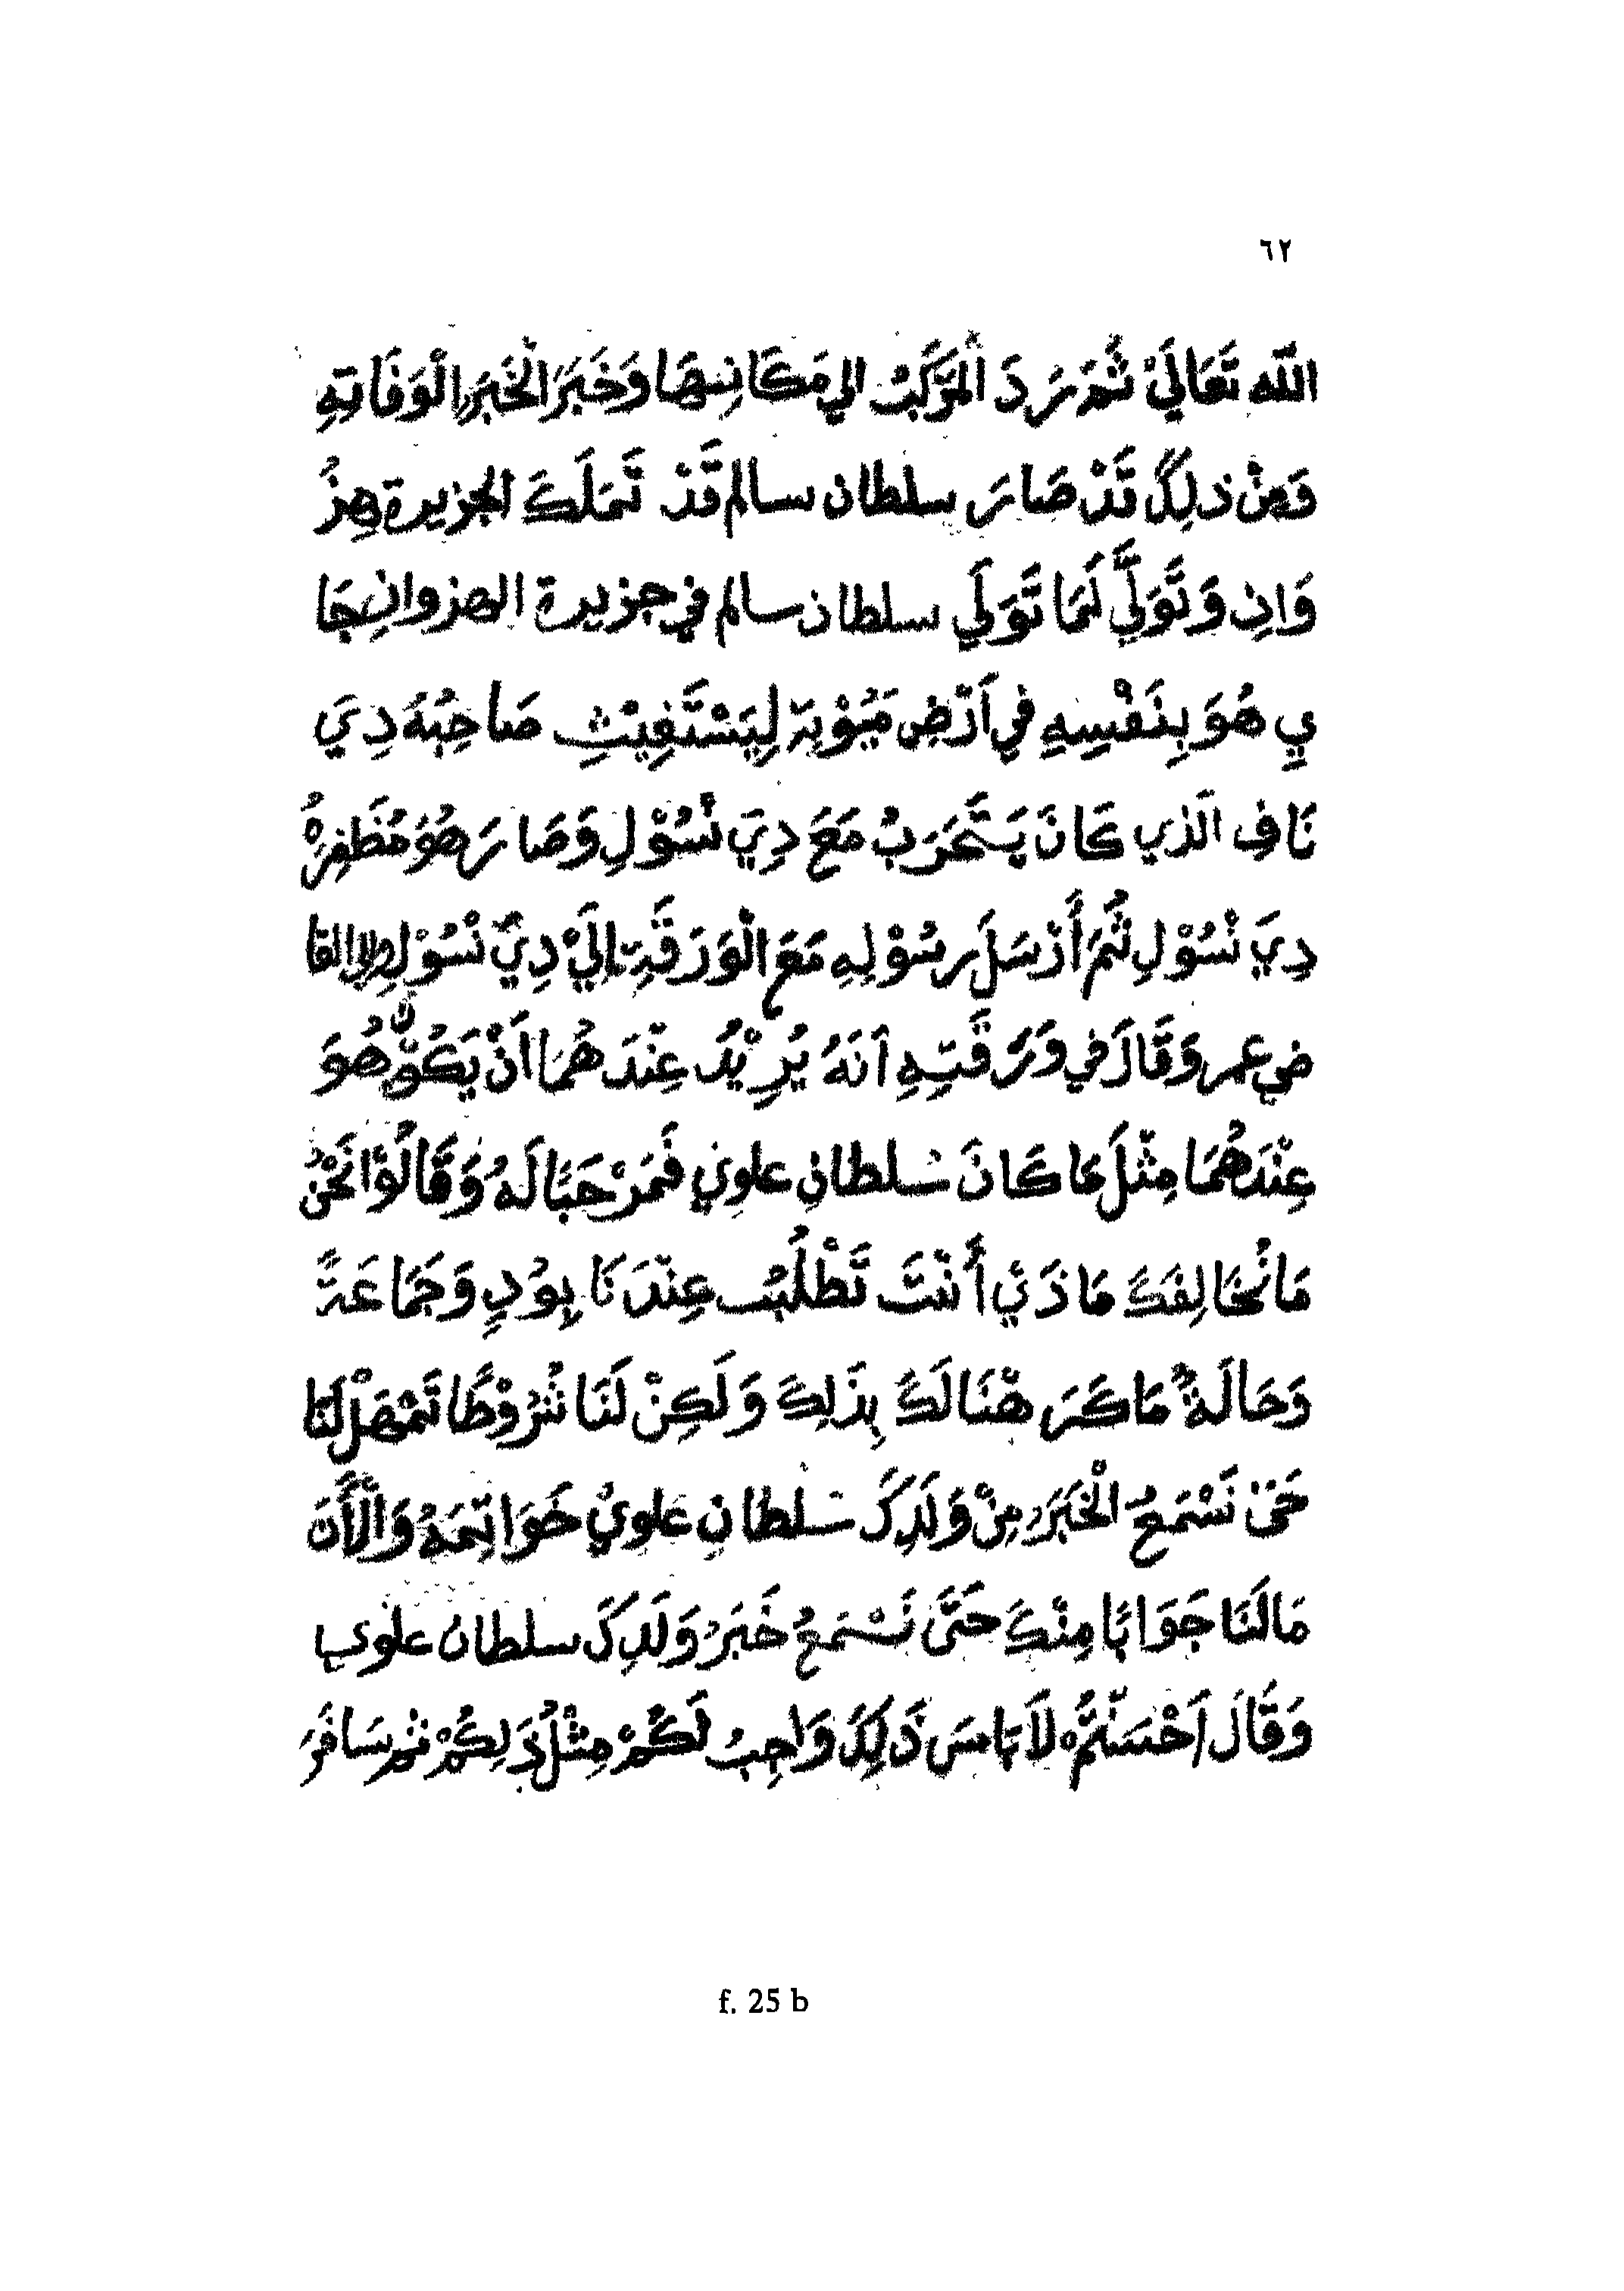 ٦٢
الله تَعَالَيْ ثُمَّ رَدَ الْمَرْكَبُ الي مَكَانِهَا وَخَبَرَ الْخَبَرِ الْوَفَاتِهِ
وَمِنْ ذلِكَ قَدْ صَارَ سلطان سالم قَدْ تَمَلَكَ الجزيرة هِزُ
وَانِ وَتَوَلَّي لَمَا تَوَلَي سلطان سالم في جزيرة الهزوانِ جَا
يِ هُوَ بِنَفْسِهِ فِي اَرْضِ مَيُوْتِة لِيَسْتَفِيْثِ صَاحِبَهُ دِيَ
نَافِ الَذي كَانَ يَتَحَرَبُ مَعَ دِيَ نْسُوْلِ وَصَارَ هُوَ مُظَفِرْهُ
دِيَ نْسُوْلِ ثُمَ أَرْسَلَ رسُوْلِهِ مَعَ الْوَرَقَةِ اِلَيْ دِيَ نْسُوْلِ والي القا
ضي عمر وَقَالَ فِي وَرَقَتِهِ اَنَهُ يُرِيْدُ عِنْدَهُمَا اَنْ يَكُوْنَ هُوَ
عِنْدَهُمَا مِثْلَ مَا كَانَ سُلطانِ علوِي فَمَرْحَبًا لَهُ وَقَالُوْا نَحْنُ
مَا نُخَالِفَكَ مَا ذَيْ أَنْتَ تَطْلُبُ عِنْدَنَا بِوُدٍ وَجَمَاعَةً
وَحَالَةً مَا كَرَ هْنَا لَكَ بِذَلِكَ وَلَكِنْ لَنَا شُرُوْطًا تَمْهَلْ لَنَا
حَتَى نَسْمَعُ الْخَبَرَ مِنْ وَلَدِكَ سُلطانِ علوِيْ خَوَاتِمَهُ وَالْأَنَ
مَا لَنَا جَوَابًا مِنْكَ حَتَّى نَسْمَعُ خَبَرُ وَلَدِكَ سلطان علوي
وَقَالَ اَحْسَنْتُمْ لاَ بَاسَ ذَلِكَ وَاجِبُ لَكُمْ مِثْلُ ذَلِكُمْ ثم سَافَرَ
f. 25 b